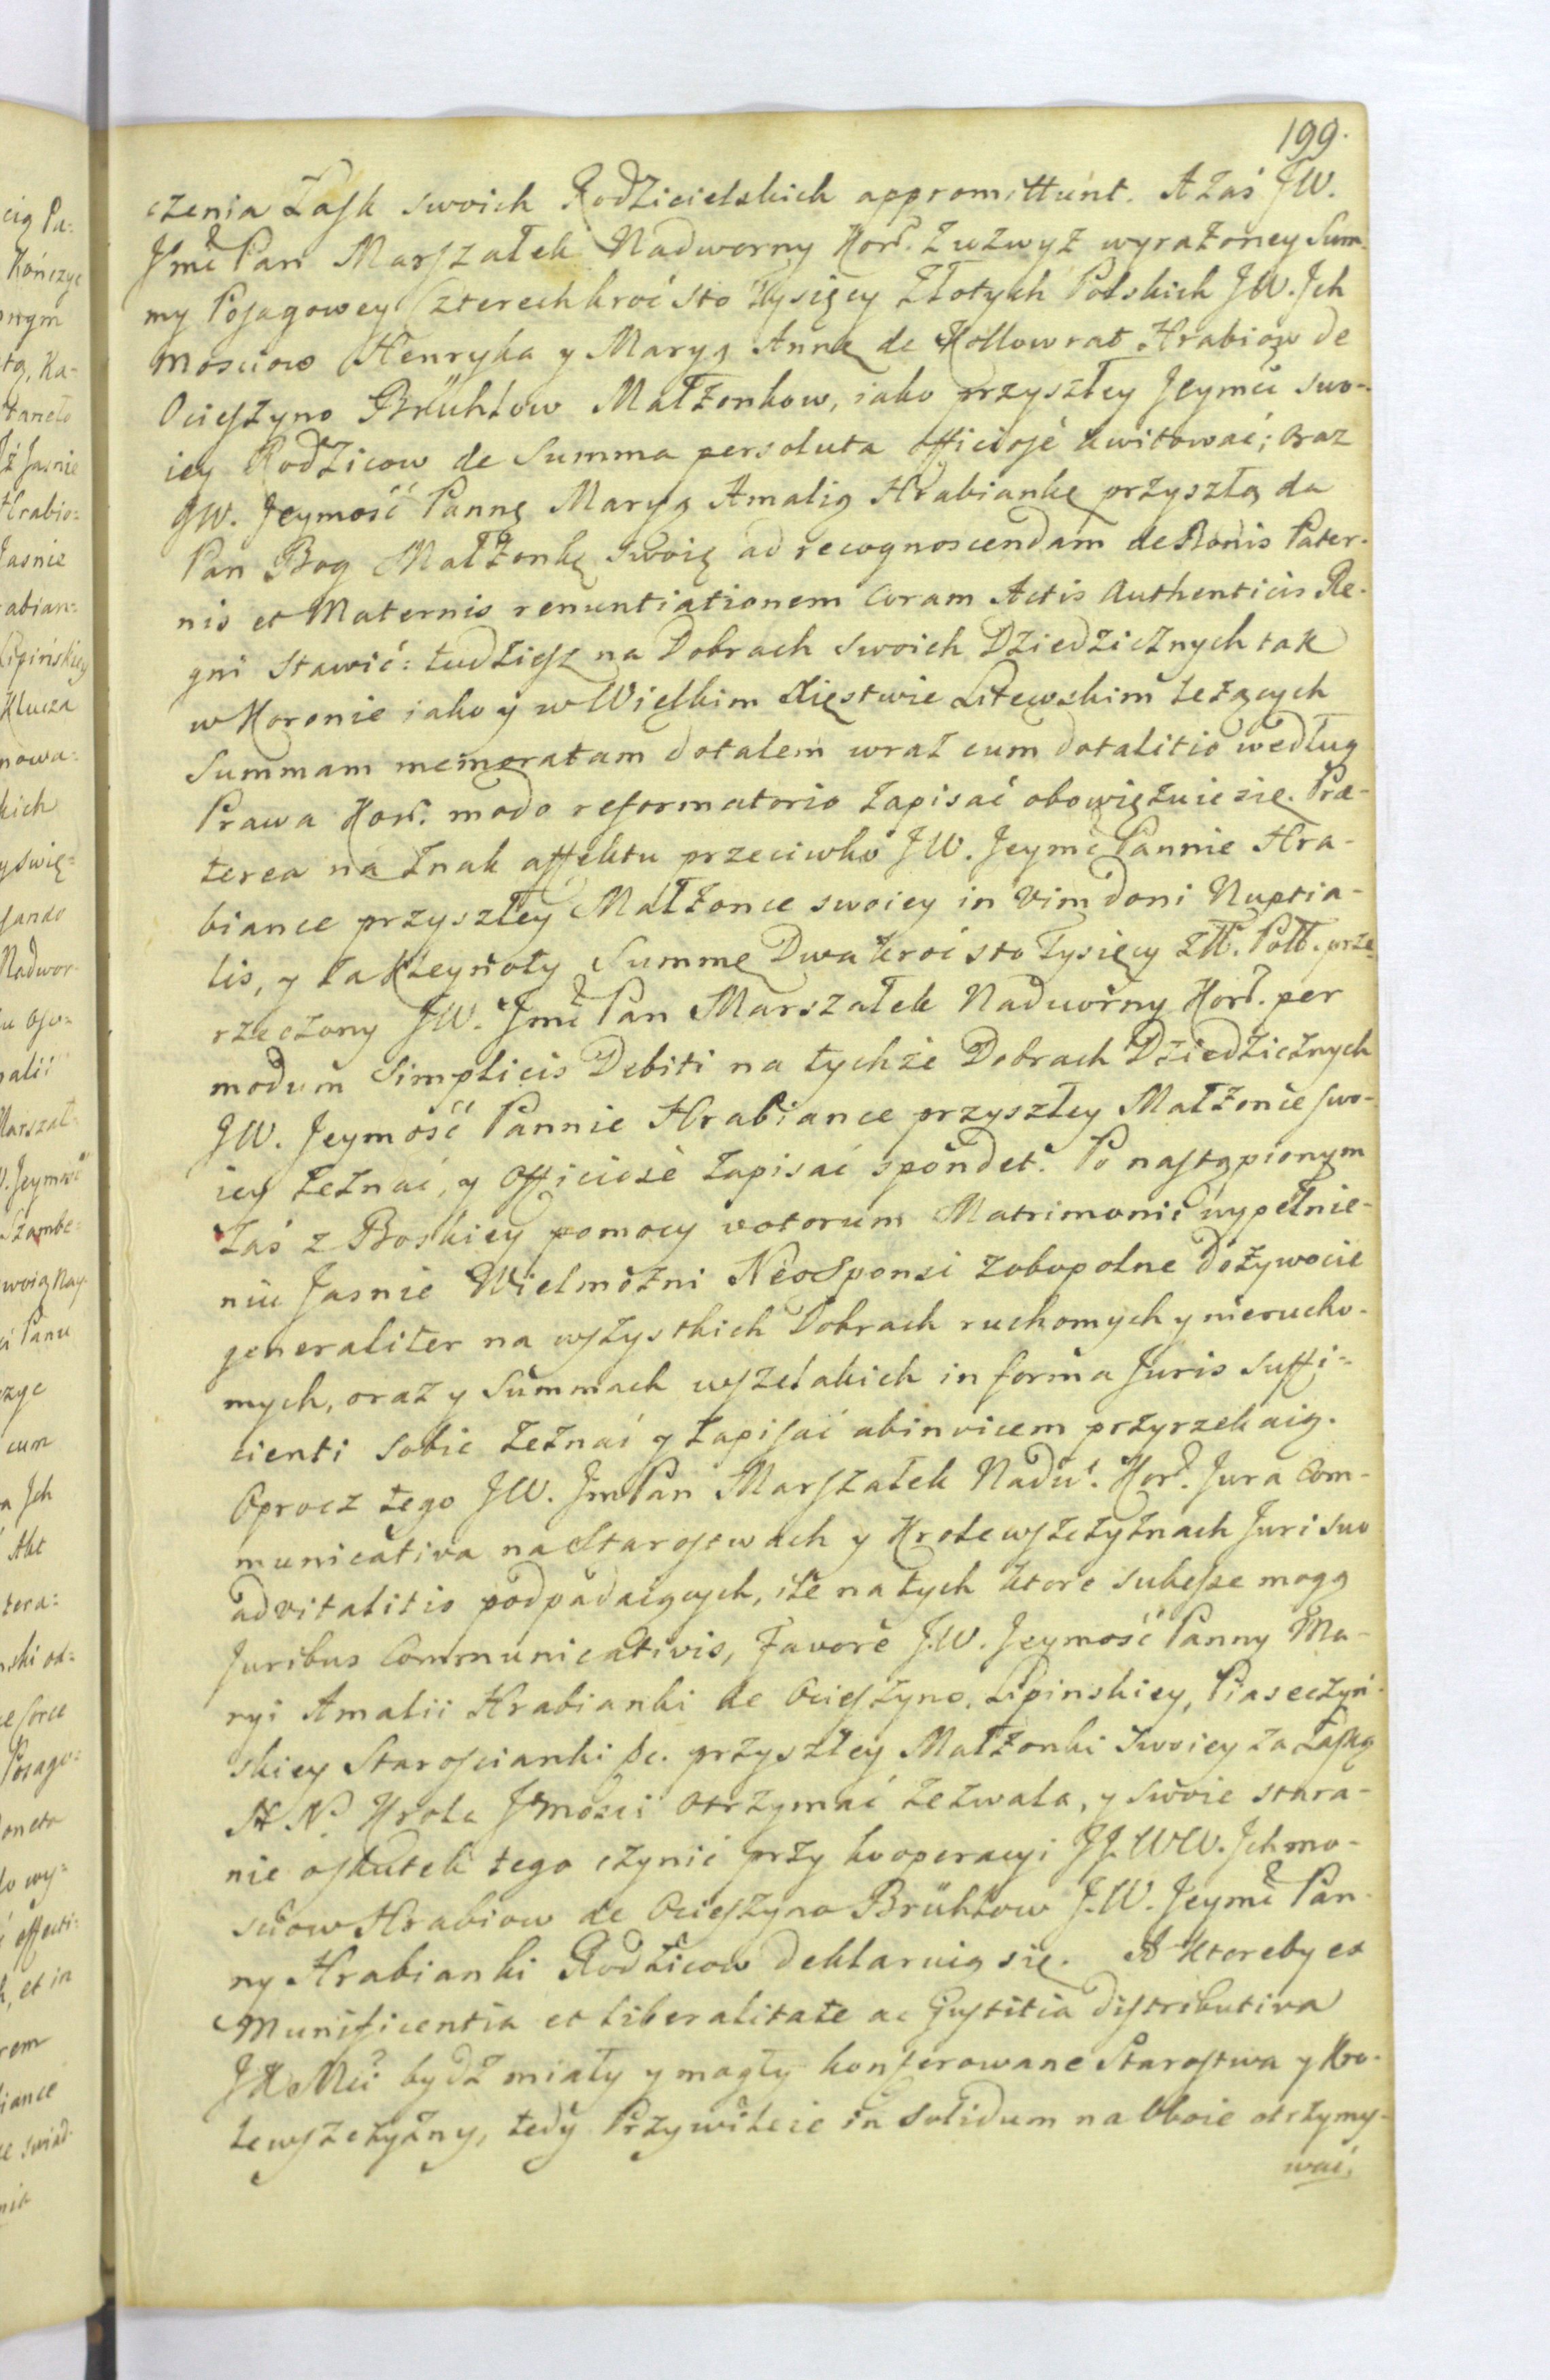 199.
czenia Łask swoich Rodzicielskich appromittunt. A zaś JW.
Jmć Pan Marszałek Nadworny Kor. z wzwyż wyrażoney Sum-
my Posagowey Czterechkroć sto Tysięcy Złotych Polskich JW. Jch
Mosciow Henryka y Maryą Annę de Kollowrat Hrabiow de
Ocieszyno Brühlow Małżonkow, iako przyszłey Jeymci swo-
iey Rodzicow de Summa persoluta officiosè kwitować; oraz
JW. Jeymość Pannę Maryą Amalią Hrabiankę przyszłą da
Pan Bog Małżonkę swoię ad recognoscendam de Bonis Pater-
nis et Maternis renuntiationem coram Actis Authenticis Re-
gni stawić: tudziesz na Dobrach swoich Dziedzicznych tak
w Koronie iako y w Wielkim Xięstwie Litewskim leżących
Summam memoratam dotalem wraz cum dotalitio według
Prawa Kor. modo reformatorio zapisać obowięzuie się. Præ-
terea na znak affektu przeciwko JW. Jeymć Pannie Hra-
biance przyszłey Małżonce swoiey in vim doni Nuptia-
lis, y za Kleynoty Summę Dwakroć sto Tysięcy Złł. Poll. prze-
rzeczony JW. Jmć Pan Marszałek Nadworny Kor. per
modum Simplicis Debiti na tychże Dobrach Dziedzicznych
JW. Jeymość Pannie Hrabiance przyszłey Małżonce swo-
iey zeznać, y officiosè zapisać spondet. Po nastąpionym
zaś z Boskiey pomocy votorum Matrimonii wypełnie-
niu Jasnie Wielmożni Neosponsi zobopolne dożywocie
generaliter na wszystkich Dobrach ruchomych y nierucho-
mych, oraz y Summach wszelakich in forma Juris suffi-
cienti sobie zeznać y zapisać abinvicem przyrzekaią.
Oprocz tego JW. Jm Pan Marszałek Nadw. Kor. Jura Com-
municativa na Starostwach y Krolewszczyznach Juri suo
advitalitio podpadaiących, ile na tych ktore subesse mogą
Juribus Communicativis, favore J.W. Jeymość Panny Ma-
ryi Amalii Hrabianki de Ocieszyno, Lipinskiey, Piaseczyń-
skiey Starościanki &c. przyszłey Małżonki swoiey za Łaską
N. Krola Jmości otrzymać zezwala, y swoie stara-
nie o skutek tego czynić przy kooperacyi JJ. WW. Jchmo-
sciow Hrabiow de Ocieszyno Brühlow J.W. Jeymć Pan-
ny Hrabianki Rodzicow deklaruią się. A ktoreby ex
Munificentia et liberalitate ac Justitia distributiva
JK Mci bydź miały y mogły konferowane Starostwa y Kro-
lewszczyzny, tedy Przywileie in solidum na Oboie otrzymy-
wać,